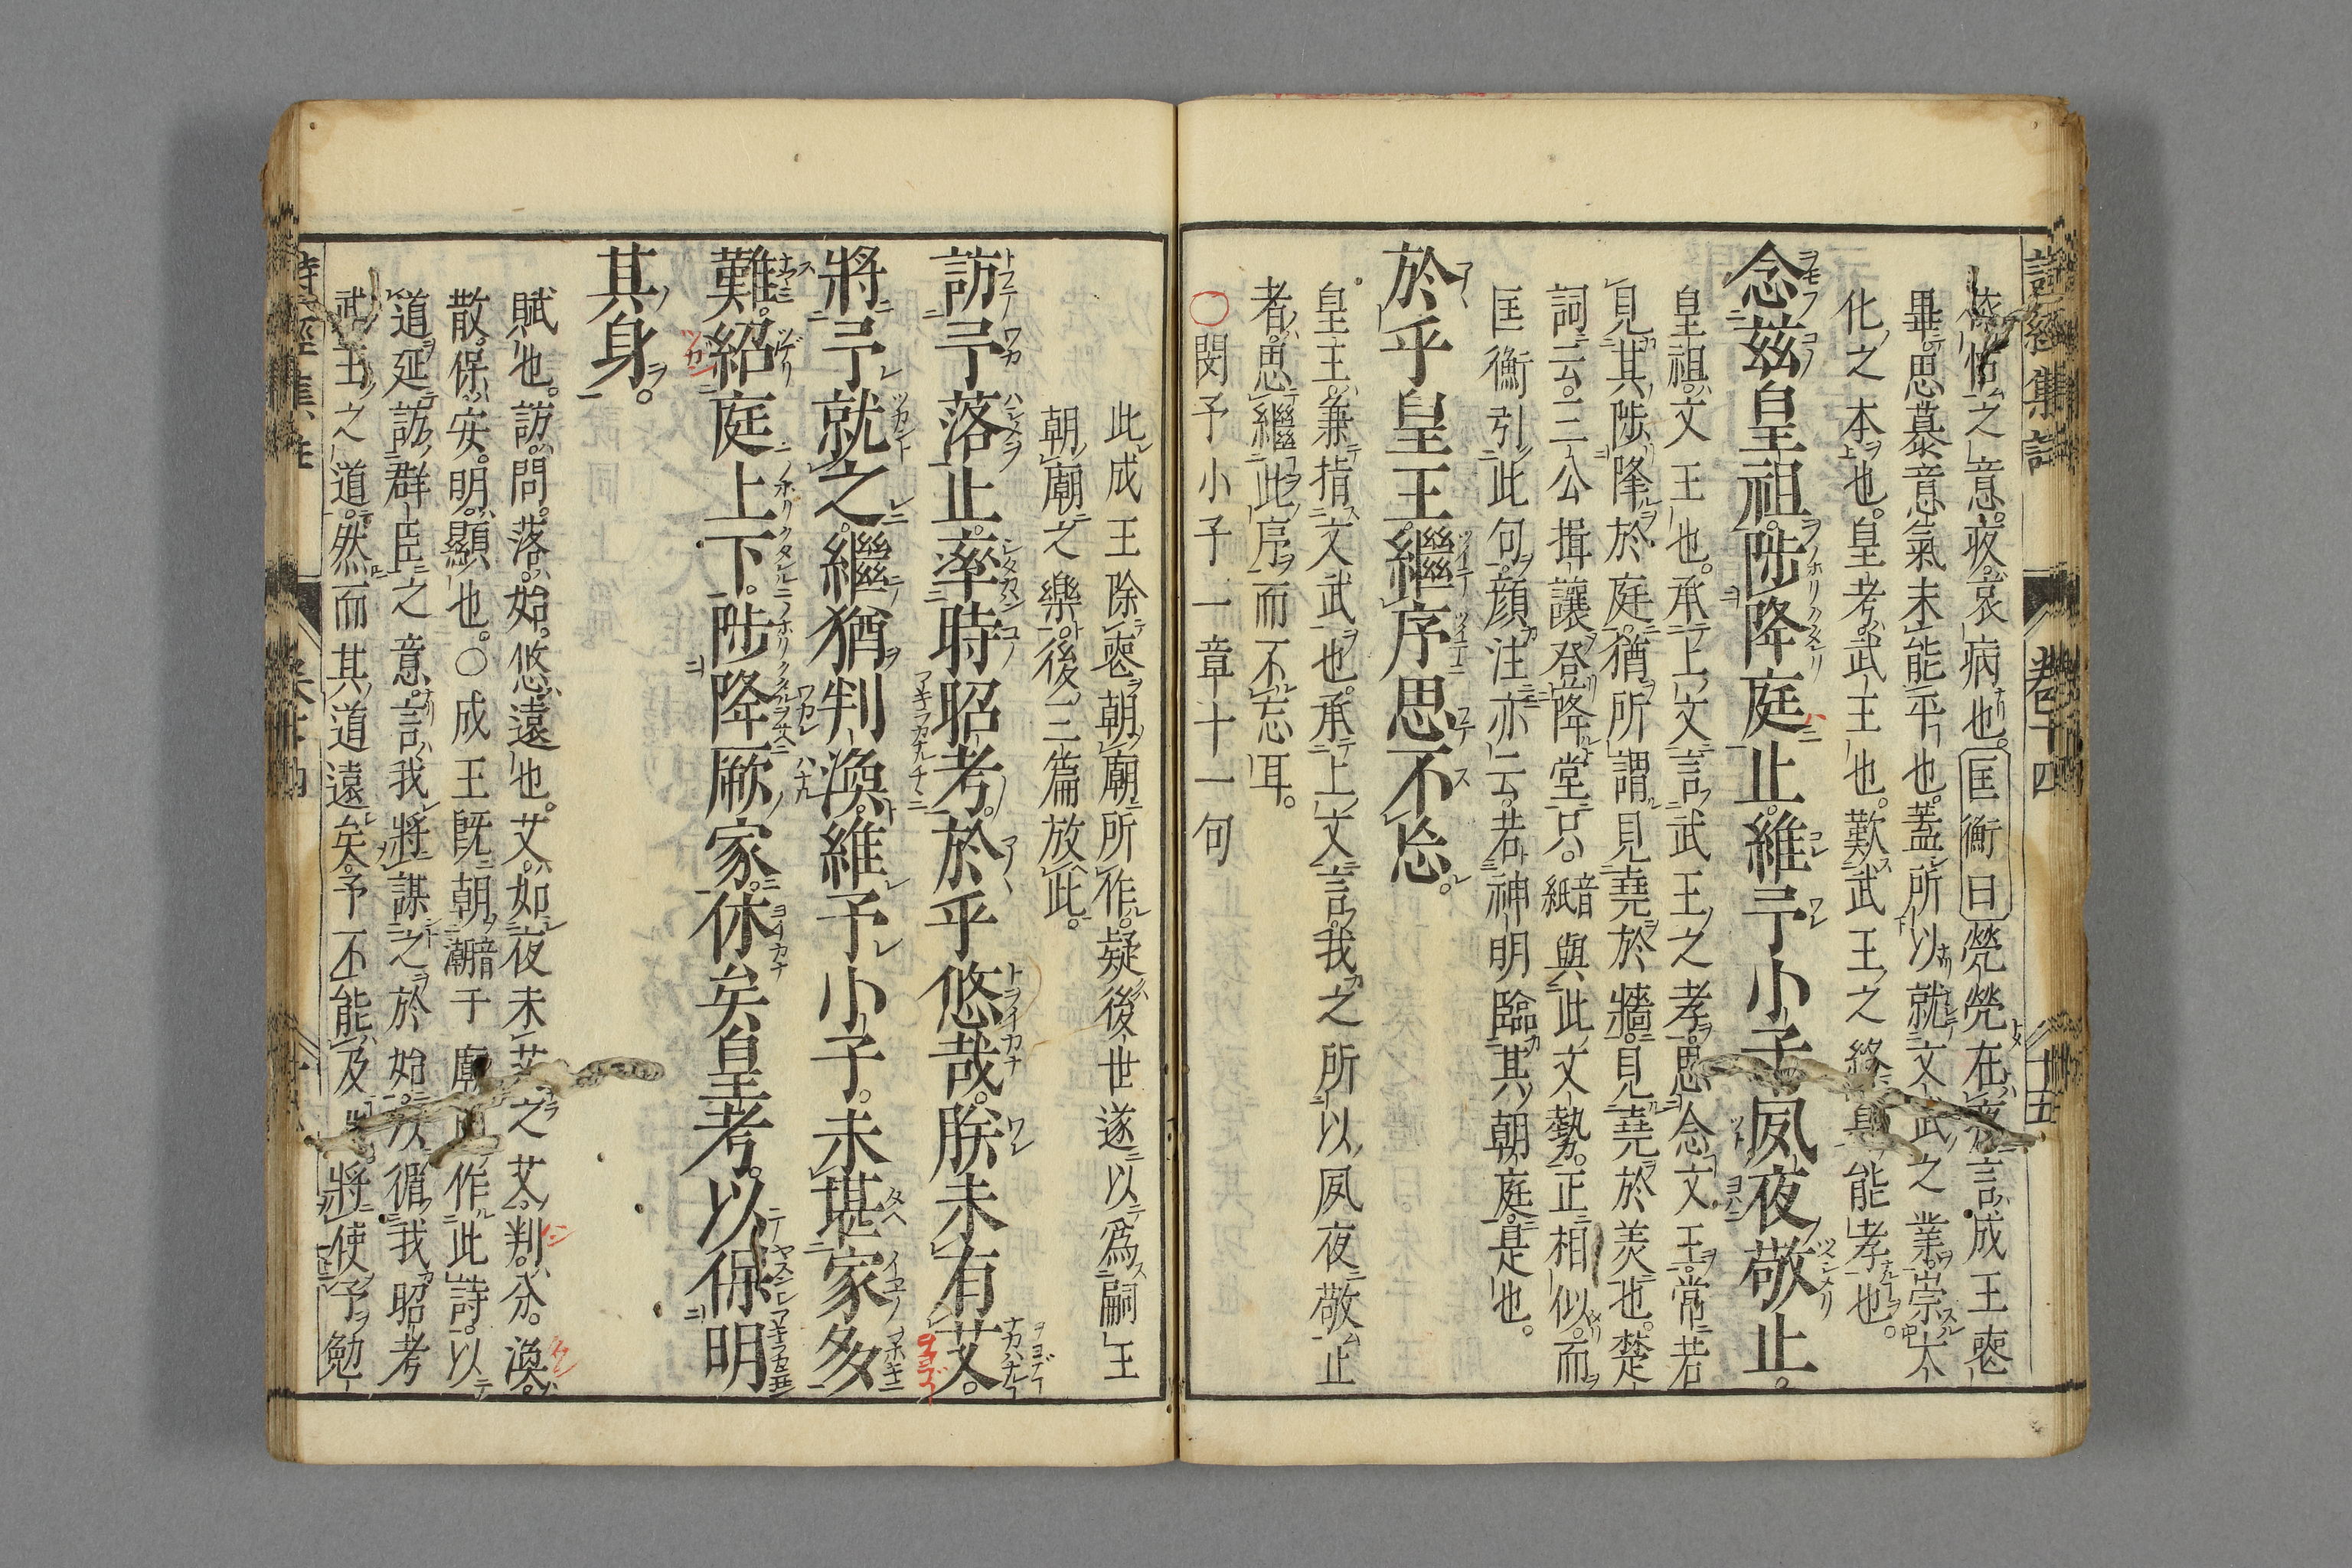 詩經集註 卷十四 十五
怙之意疚哀病也匡衡曰煢煢在疚言成王喪
畢思慕意氣未能平也蓋所以就文武之業崇大
化之本也皇考武王也歎武王之終身能孝也
念茲皇祖陟降庭止維予小子夙夜敬止
皇祖文王也承上文言武王之孝思念文王常若
見其陟降於庭猶所謂見堯於牆見堯於羹也楚
詞云三公揖讓登降堂只音紙與此文勢正相似而
匡衡引此句顔注亦云若神明臨其朝庭是也
於乎皇王繼序思不忘
皇王兼指文武也承上文言我之所以夙夜敬止
者思繼此序而不忘耳
〇閔予小子一章十一句
此成王除喪朝廟所作疑後世遂以爲嗣王
朝廟之樂後三篇放此
訪予落止率時昭考於乎悠哉朕未有艾
將予就之繼猶判渙維予小子未堪家多
難紹庭上下陟降厥家休矣皇考以保明
其身
賦也訪問落始悠遠也艾如夜未艾之艾判分渙
散保安明顯也〇成王既朝音潮于廟作此詩以
道延訪群臣之意言我將謀之於始以循我昭考
武王之道然而其道遠矣予不能及也將使予勉